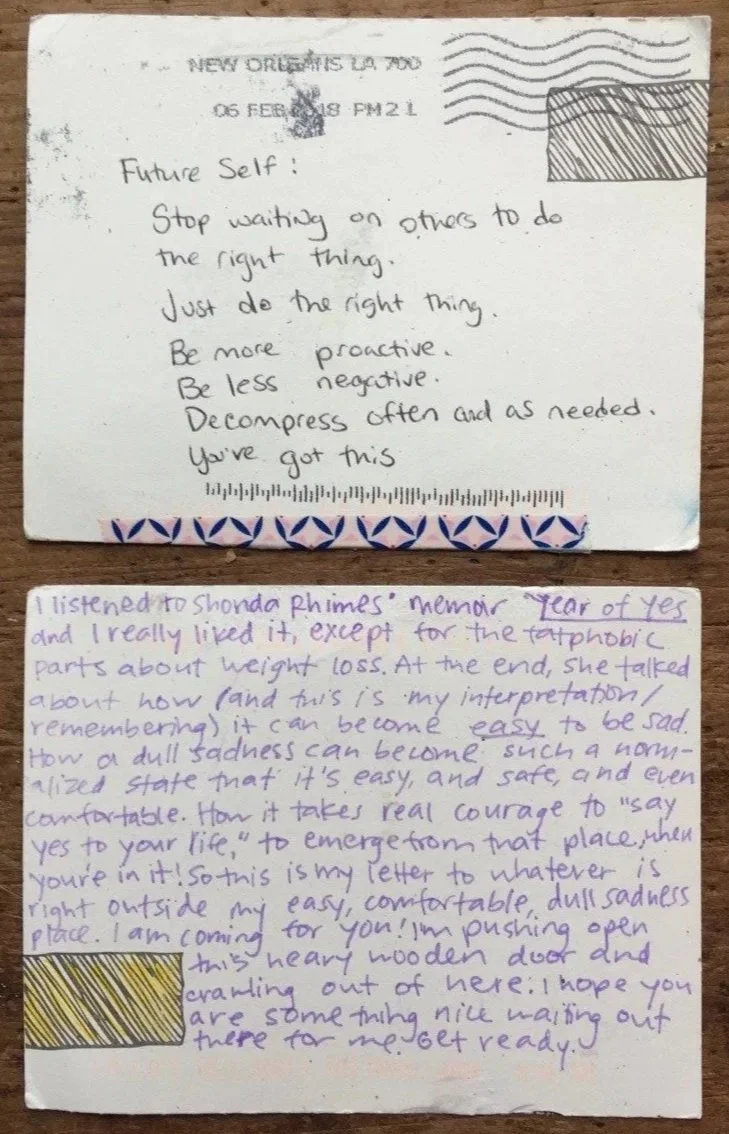 NEW ORLEANS LA 700
06 FEB 2018 PM 2 L
Future Self :
Stop waiting on others to do
the right thing.
Just do the right thing.
Be more proactive.
Be less negative.
Decompress often and as needed.
You've got this
I listened to Shonda Rhimes' memoir "Year of Yes
and I really liked it, except for the fatphobic
parts about weight loss. At the end, she talked
about how (and this is my interpretation/
remembering) it can become easy to be sad.
How a dull sadness can become such a norm-
alized state that it's easy, and safe, and even
comfortable. How it takes real courage to "say
yes to your life," to emerge from that place, when
you're in it! So this is my letter to whatever is
right outside my easy, comfortable, dull sadness
place. I am coming for you! I'm pushing open
this heavy wooden door and
crawling out of here. I hope you
are something nice waiting out
there for me. Get ready.